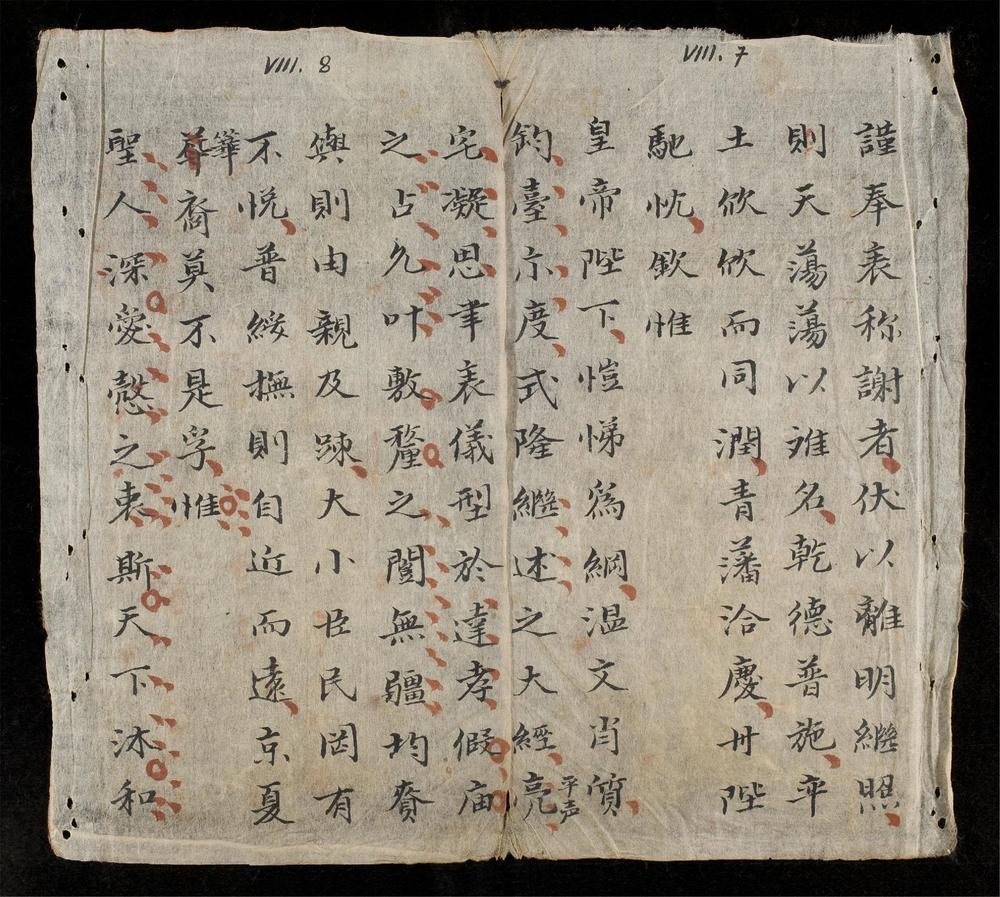 VIII. 7
謹奉表称謝者伏以離明繼照
則天蕩蕩以难名乾德普施率
土攸攸而同潤青藩洽慶丹陛
馳忱欽惟
皇帝陛下愷悌爲綱温文肖質
鈞臺示度式隆繼述之大經亮平声
VIII. 8
宅凝思聿表儀型於達孝假庙
之占允叶敷釐之闓無疆均賚
與則由親及踈大小臣民罔有
不悦普綏撫則自近而遠京夏
華裔莫不是孚惟
聖人深愛慤之衷斯天下沐和